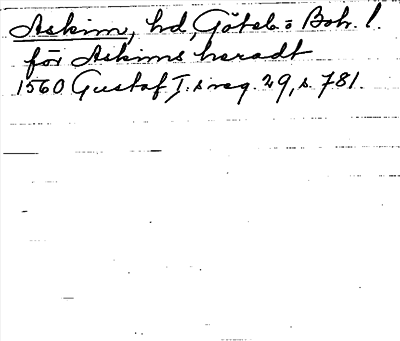 Askim, hd, Göteb = Boh. l.
för Askims haradt
1560 Gustaf I:s reg. 29, s. 781.